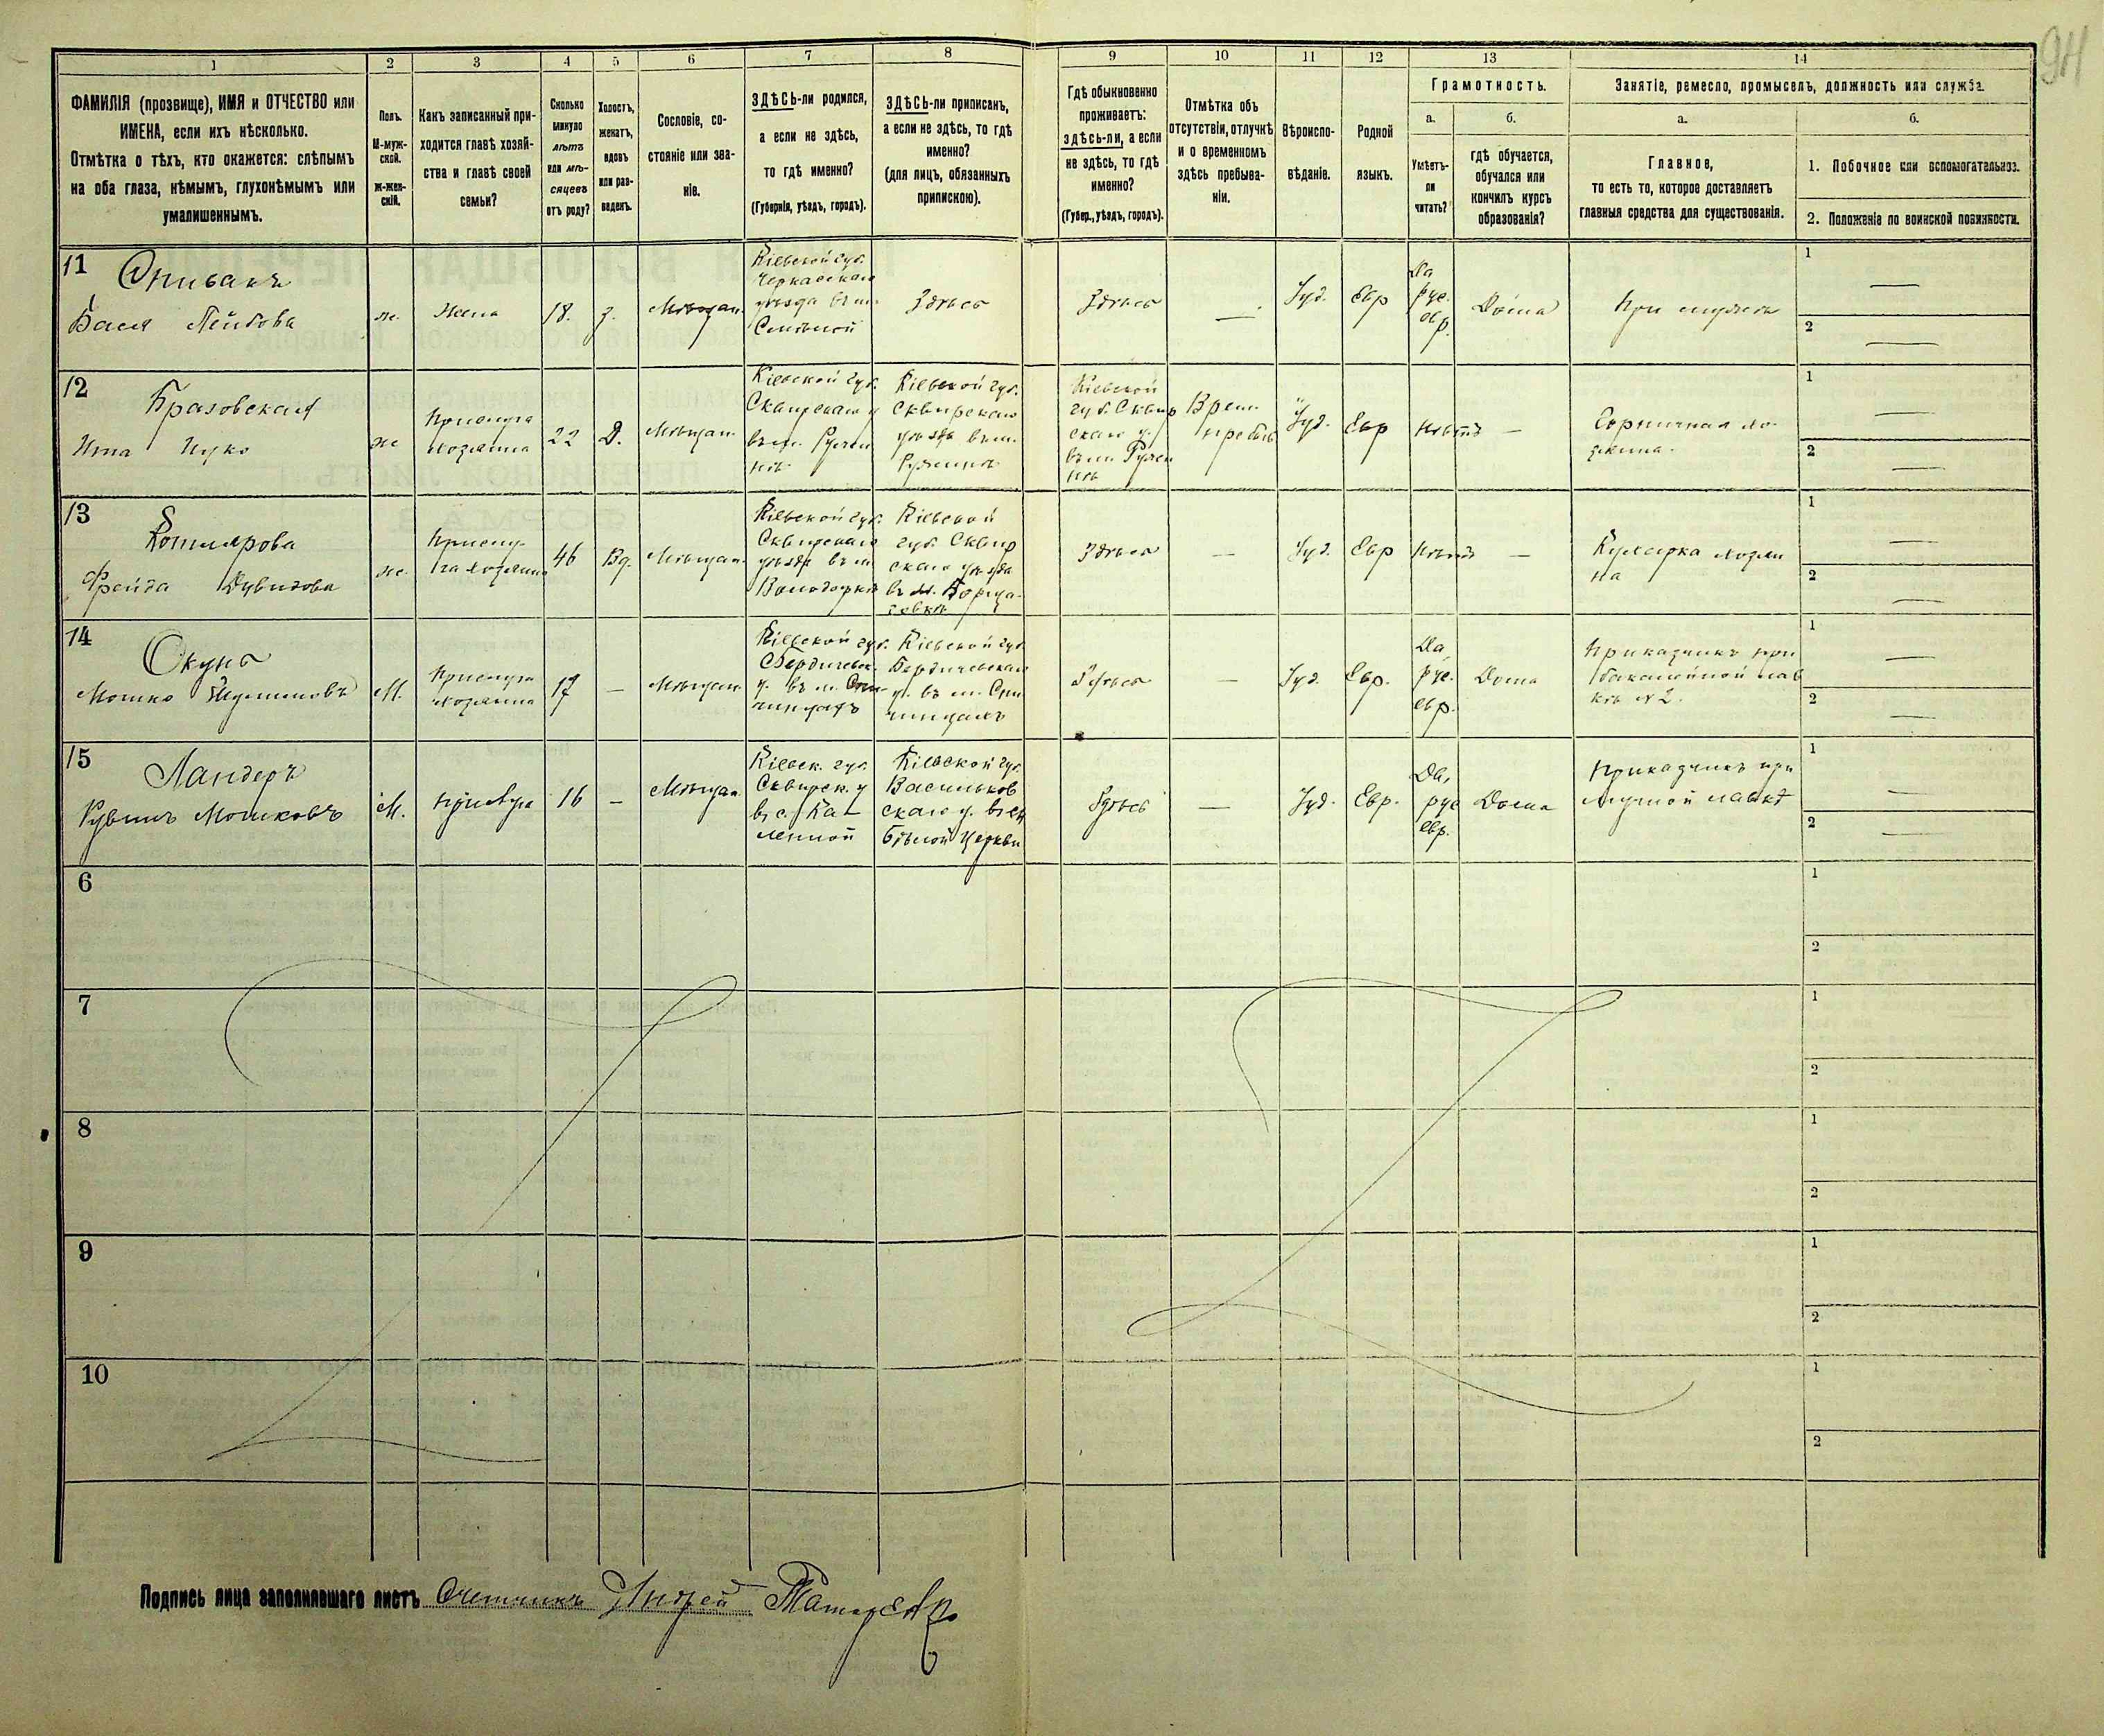 94
1 2 3 4 5 6 7 8 9 10 11 12 13 14
ФАМИЛІЯ (прозвище), ИМЯ и ОТЧЕСТВО или
ИМЕНА, если ихъ нѣсколько.
Отмѣтка о тѣхъ, кто окажется: слѣпымъ
на оба глаза, нѣмымъ, глухонѣмымъ или
умалишеннымъ.
Полъ.
М-муж-
ской.
ж-жен-
скій.
Какъ записанный при-
ходится главѣ хозяй-
ства и главѣ своей
семьи?
Сколько
минуло
лѣтъ
или мѣ-
сяцевъ
отъ роду?
Холостъ,
женатъ,
вдовъ
или раз-
веденъ.
Сословіе, со-
стояніе или зва-
ніе.
ЗДѢСЬ-ли родился,
а если не здѣсь,
то гдѣ именно?
(Губернія, уѣздъ, городъ).
ЗДѢСЬ-ли приписанъ,
а если не здѣсь, то гдѣ
именно?
(для лицъ, обязанныхъ
припискою).
Гдѣ обыкновенно
проживаетъ:
здѣсь-ли, а если
не здѣсь, то гдѣ
именно?
(Губер., уѣздъ, городъ).
Отмѣтка объ
отсутствіи, отлучкѣ
и о временномъ
здѣсь пребыва-
ніи.
Вѣроиспо-
вѣданіе.
Родной
языкъ.
Грамотность.
а.
Умѣетъ-
ли
читать?
б.
гдѣ обучается,
обучался или
кончилъ курсъ
образованія?
Занятіе, ремесло, промыселъ, должность или служба.
а.
Главное,
то есть то, которое доставляетъ
главныя средства для существованія.
б.
1. Побочное или вспомогательное.
2. Положеніе по воинской повинности.
11
Спивакъ
Бася Лейбова
ж.
Жена
18.
з.
Мѣщан.
Кіевской губ.
Черкасскаго
уѣзда въ м.
Смѣлой
Здѣсь
Здѣсь
—
Іуд.
Евр
Да
рус.
евр.
Дома
При мужѣ
1 —
2 —
12
Бразовская
Ита Ицко
ж
Прислуга
хозяина
22
Д.
Мѣщан.
Кіевской губ.
Сквирскаго у
въ м. Ружи
нѣ
Кіевской губ.
Сквирскаго
уѣзда въ м.
Ружинѣ
Кіевской
губ. Сквир
скаго у.
въ м. Ружи
нѣ
Врем.
преб
Іуд.
Евр
Нѣтъ
—
Горничная хо-
зяина.
1 —
2 —
13
Котлярова
Фрейда Дувидова
ж.
Прислу-
га хозяина
46
Вд.
Мѣщан.
Кіевской губ.
Сквирскаго
уѣзда въ м.
Володаркѣ
Кіевской
губ. Сквир
скаго уѣзда
въ м. Борща-
говкѣ
Здѣсь
—
Іуд.
Евр
Нѣтъ
—
Кухарка хозяи
на
1 —
2 —
14
Окунь
Мошко
М.
Прислуга
хозяина
17
—
Мѣщан.
Кіевской губ.
Бердичевск.
у. въ м. Спи-
чинцахъ
Кіевской губ.
Бердичевскаго
у. въ м. Спи
чинцахъ
Здѣсь
—
Іуд.
Евр.
Да,
рус.
евр.
Дома
Приказчикъ при
бакалейной лав
кѣ № 2.
1 —
2 —
15
Ландеръ
Рувинъ Мошковъ
М.
прислуга
16
—
Мѣщан.
Кіевск. губ.
Сквирск. у
въ с. Ка-
менной
Кіевской губ.
Васильков
скаго у. въ м
Бѣлой Церкви
Здѣсь
—
Іуд.
Евр.
Да,
рус
евр.
Дома
Приказчикъ при
мучной лавкѣ
1 —
2 —
6
1
2
7
1
2
8
1
2
9
1
2
10
1
2
Подпись лица заполнявшаго листъ Счетчикъ Андрей